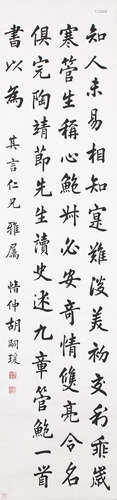 知人未易相知寔難淡美初交利乖歲
寒管生稱心鮑叔必安奇情雙亮令名
俱完陶靖節先生讀史述九章管鮑一首
書以為 其言仁兄 雅屬 愔仲胡嗣瑗